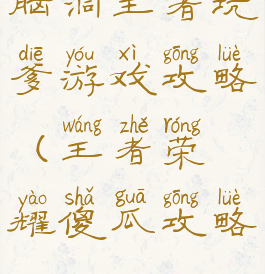 脑洞王者坑
diē yóu xì gōng lüè
爹游戏攻略
wáng zhě róng
（王者荣
yào shǎ guā gōng lüè
耀傻瓜攻略